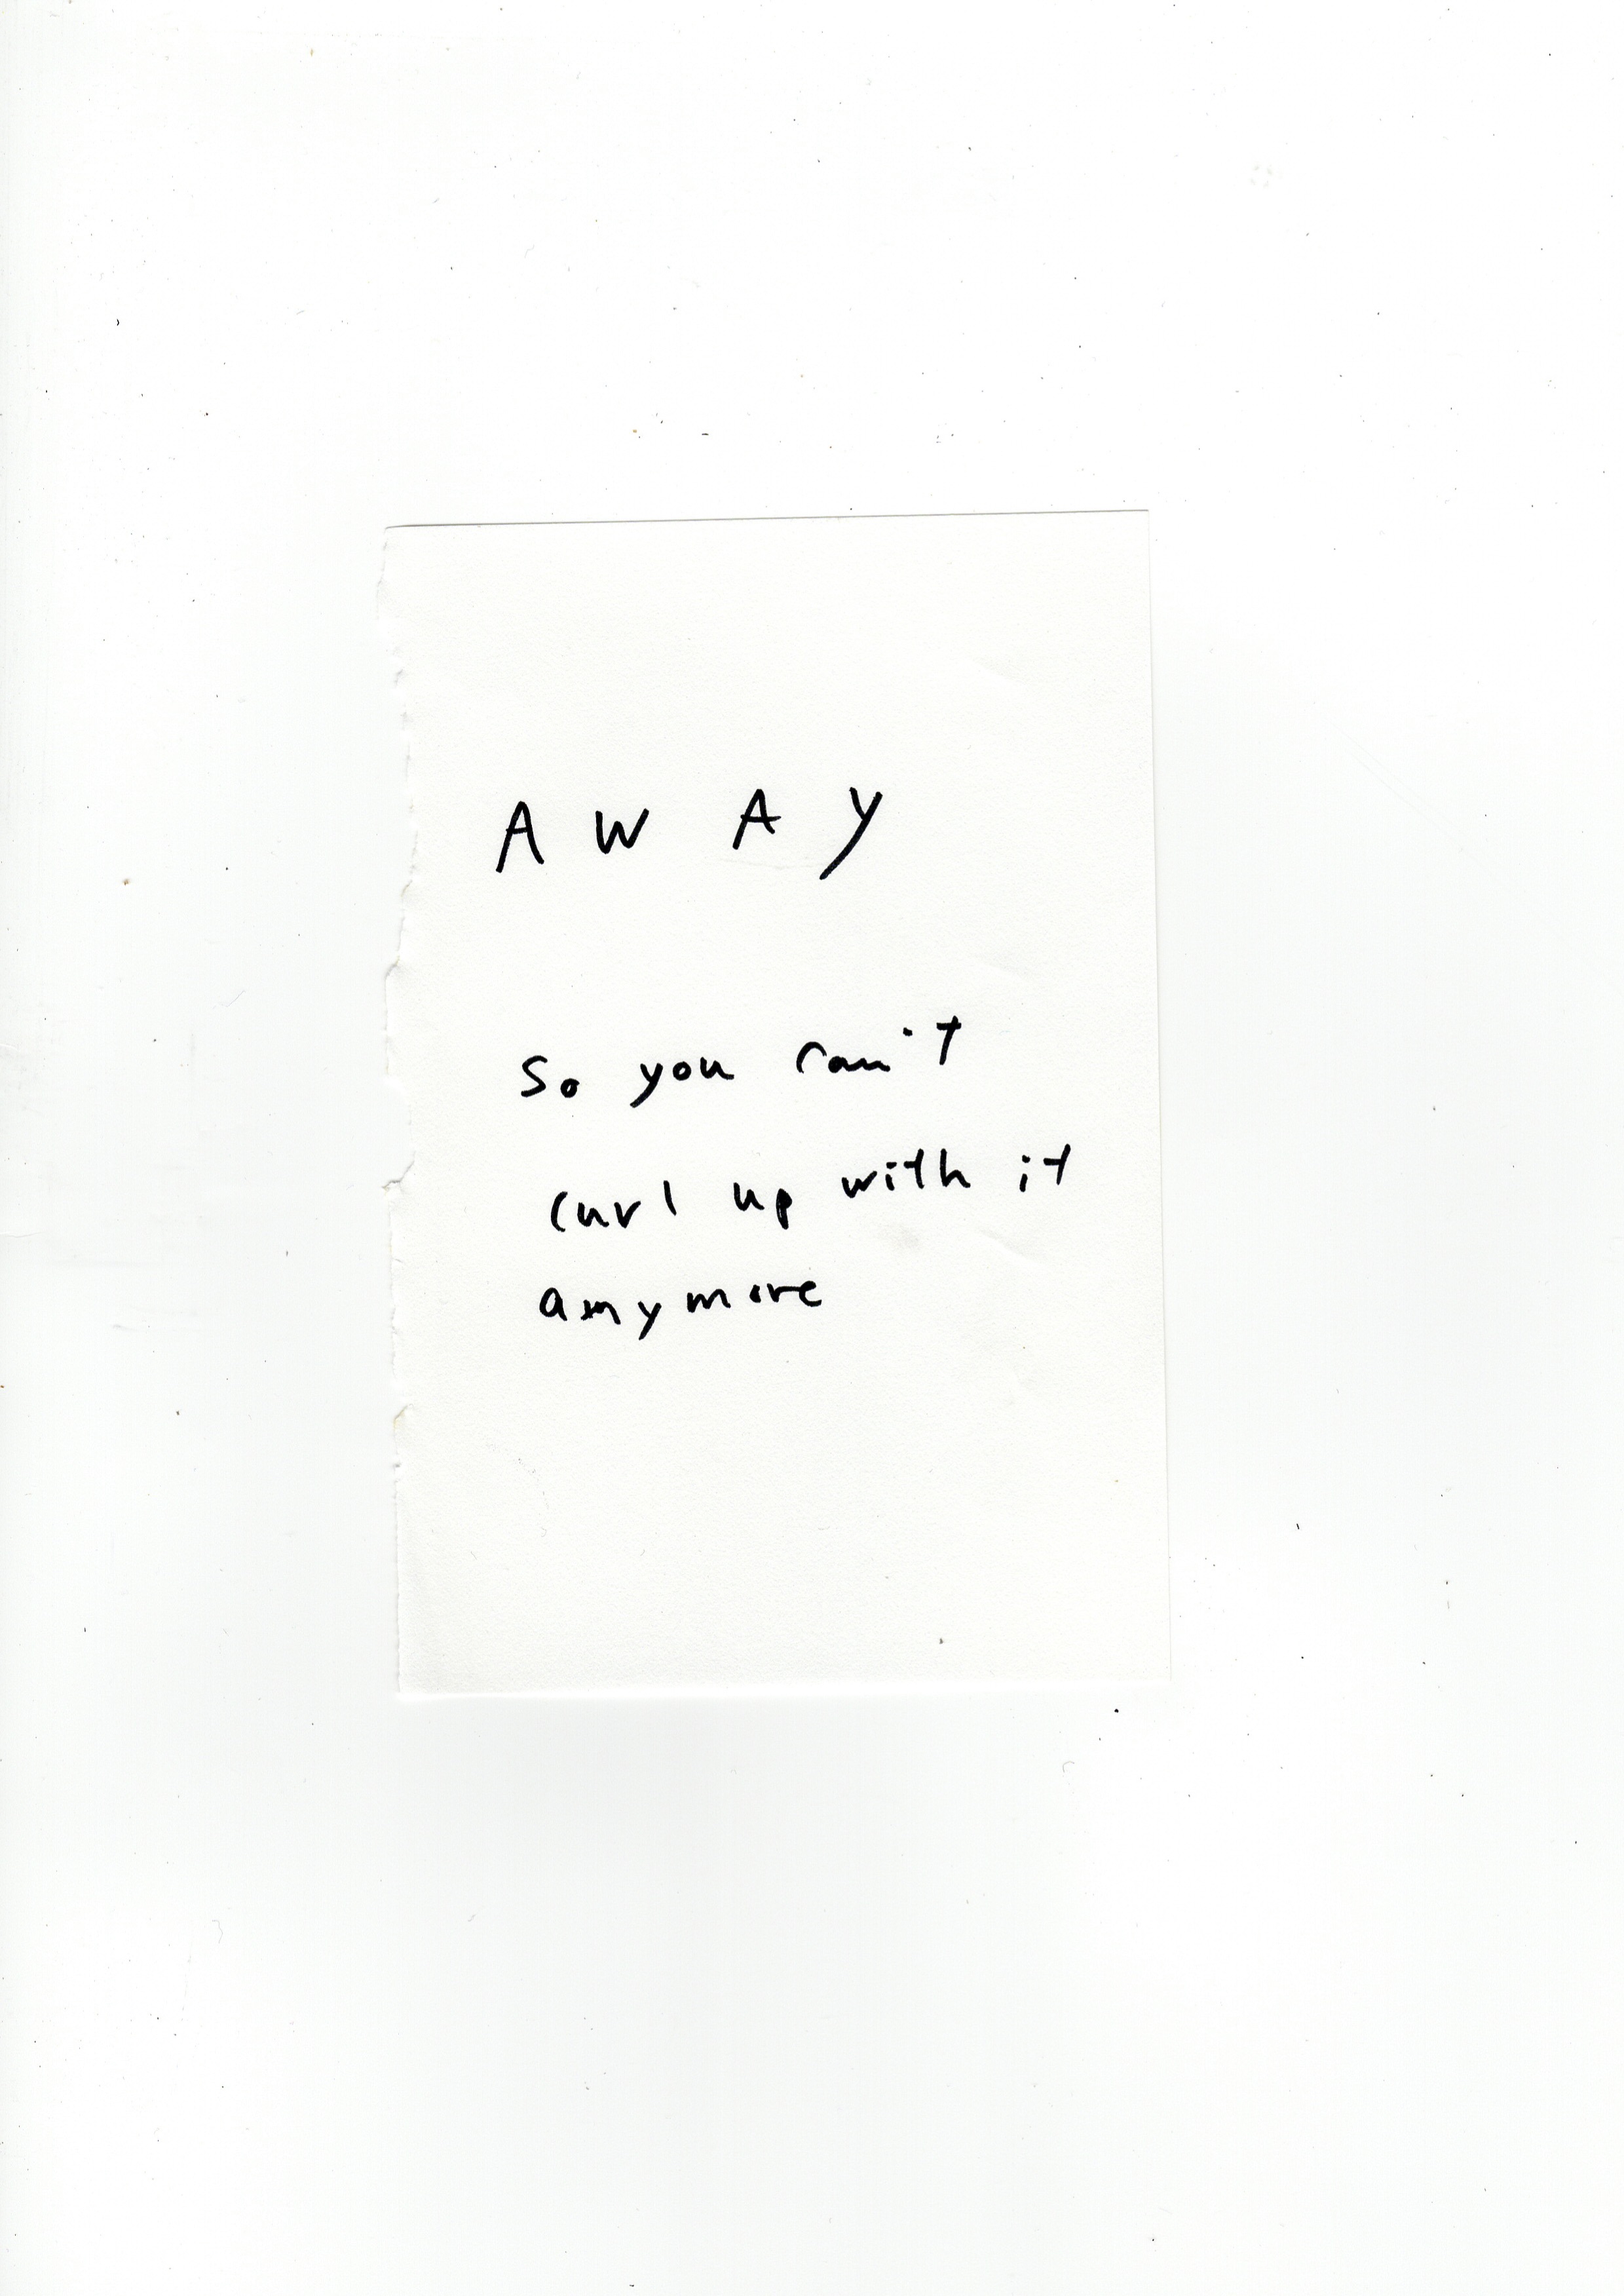 A W A Y
So you can't
curl up with it
anymore